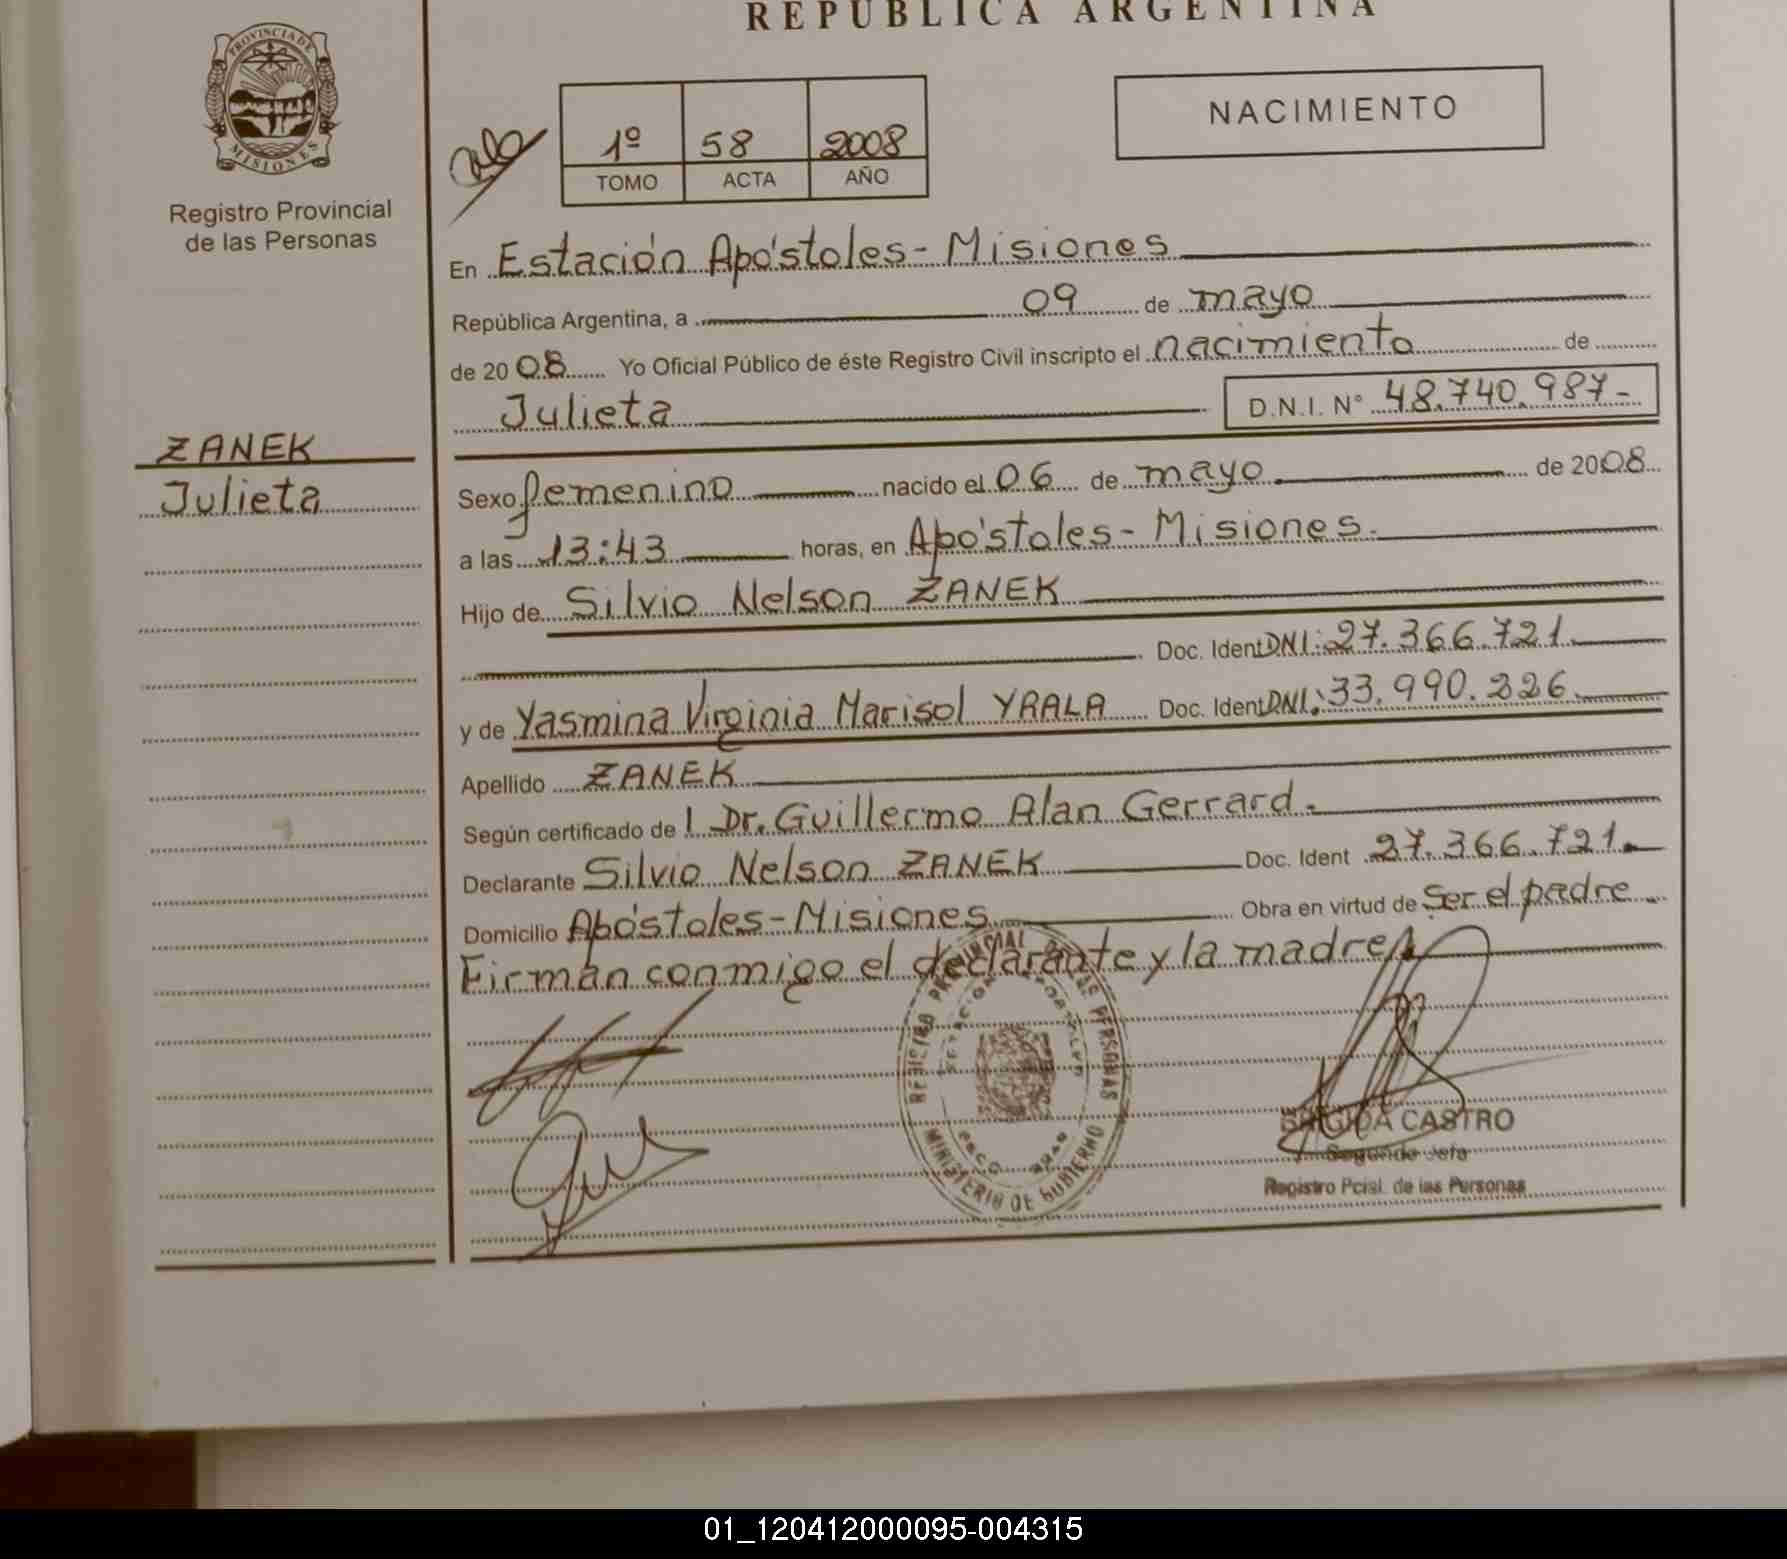 REPÚBLICA ARGENTINA
PROVINCIA DE
MISIONES
Registro Provincial
de las Personas
1º 58 2008
TOMO ACTA AÑO
NACIMIENTO
En Estación Apóstoles - Misiones
República Argentina, a 09 de mayo
de 2008 Yo Oficial Público de éste Registro Civil inscripto el nacimiento de
Julieta D.N.I. N° 48.740.987-
ZANEK
Julieta
Sexo femenino nacido el 06 de mayo de 2008
a las 13:43 horas, en Apóstoles - Misiones.
Hijo de Silvio Nelson ZANEK
Doc. Ident DNI: 27.366.721.
y de Yasmina Virginia Marisol YRALA Doc. Ident DNI: 33.990.226.
Apellido ZANEK
Según certificado de l Dr. Guillermo Alan Gerrard.
Declarante Silvio Nelson ZANEK Doc. Ident 27.366.721.
Domicilio Apóstoles - Misiones Obra en virtud de Ser el padre.
Firman conmigo el declarante y la madre.
REGISTRO PROVINCIAL DE LAS PERSONAS
MINISTERIO DE GOBIERNO
BRIGIDA CASTRO
Segundo Jefe
Registro Pcial. de las Personas
01_120412000095-004315